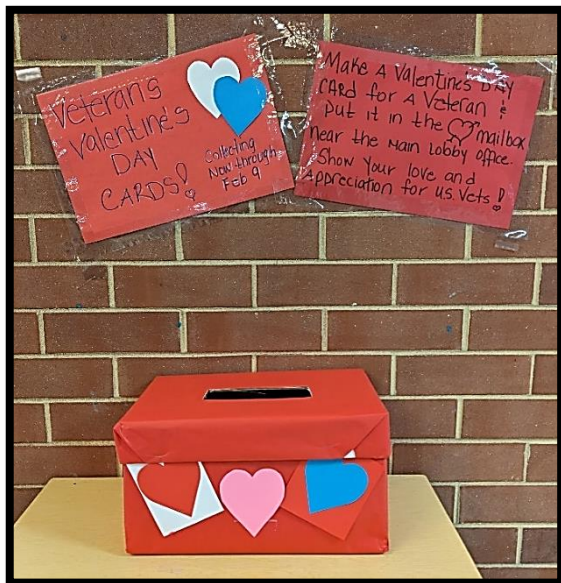 Veterans
Valentine's
DAY
CARDS!
Collecting
Now through
Feb 9
Make A Valentines DAY
CARD for A Veteran &
Put it in the ♡ mailbox
near the Main Lobby office.
Show Your love and
Appreciation for U.S. Vets!